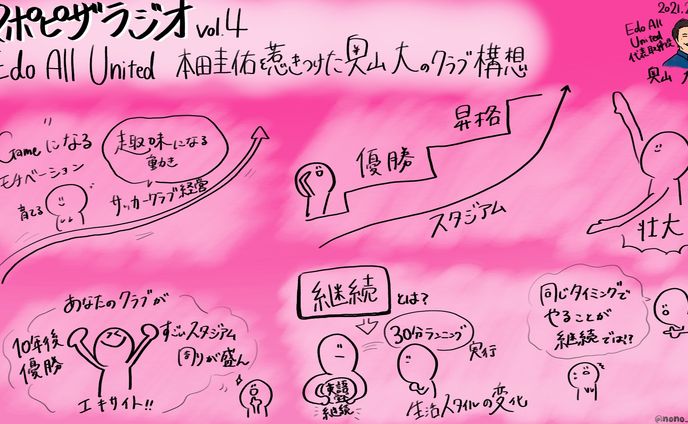 スポピザラジオ vol.4
Edo All United 本田圭佑を惹きつけた奥山大のクラブ構想
2021.2
Edo All
United
代表取締役
奥山 大
Gameになる
モチベーション
育てる
趣味になる
動き
サッカークラブ経営
優勝
昇格
スタジアム
壮大
あなたのクラブが
10年後
優勝
すごいスタジアム
周りが盛ん
エキサイト!!
継続
とは?
30分ランニング
実行
英語
継続
生活スタイルの変化
同じタイミングで
やることが
継続では!?
@nono_